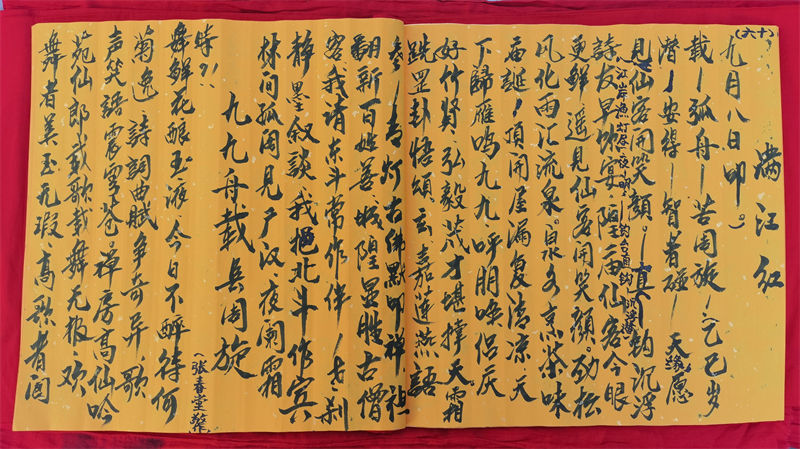 (六十)
满江红
九月八日叩。
载一孤舟一苦周旋一(乙巳岁
潜一安得一智者碰一天缘愿
见仙客开笑颜。一真钩沉浮
八江岸渔灯原一夜明一钓台
诗友早饮宴隍庙仙客今眼
更鲜遥见仙客开笑颜劲松
风化雨汇流泉泉名烹茶味
庙诞一顶开屋漏复清凉天
下归雁鸣九九呼朋唤侣庆
好竹贤弘毅茂才堪撑天霜
跳罡卦悟颂云嘉莲燕语
叁一青灯古佛默叩禅祖
翻新百姓善城隍显胜古僧
客我请东斗常作伴一古刹
静墨叙谈我挹北斗作宾
林间孤阁见广汉夜阑霜
九九舟载兵周旋
(张春堂辈
舞鲜花酿玉液今日不醉待何
菊逸诗词曲赋争奇异歌
声笑语震云苍禅房高仙吟
苑仙郎载歌载舞无极欢
舞者美玉无瑕高歌者阅